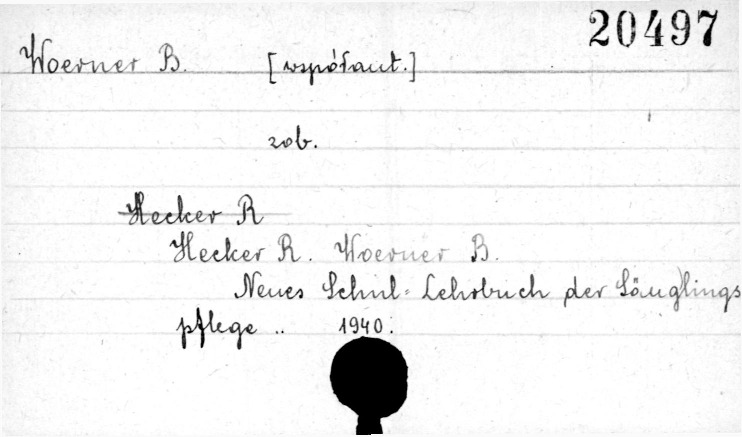 20497
Woerner B. [współaut.]
zob.
Hecker R
Hecker R. Woerner B.
Neues Schul= Lehrbuch der Säuglings
pflege .. 1940.